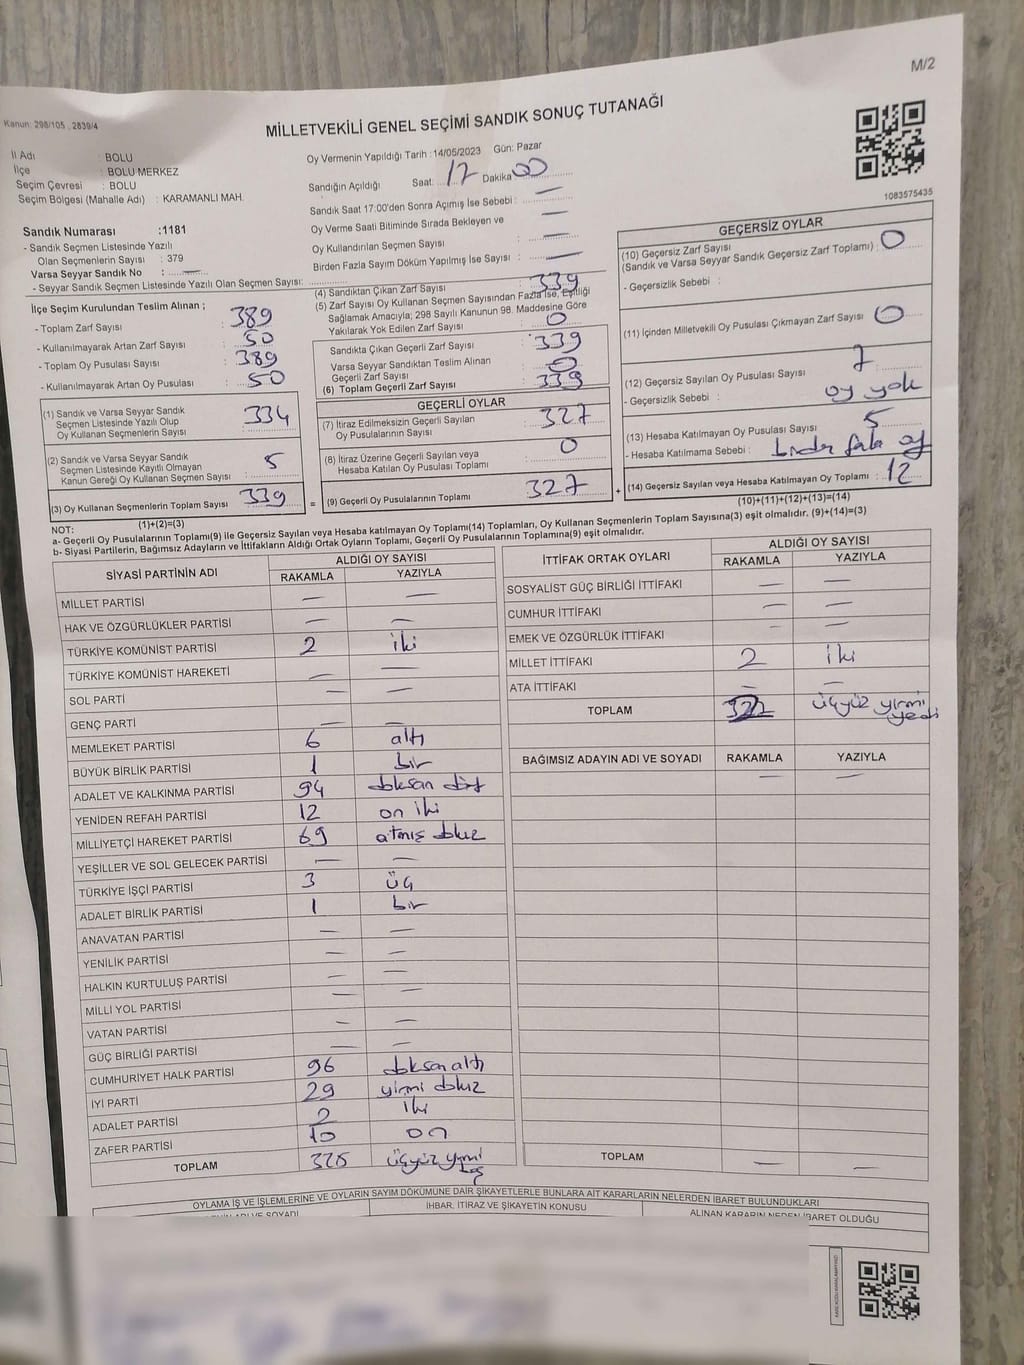 M/2
Kanun: 298/105 , 2839/4
MİLLETVEKİLİ GENEL SEÇİMİ SANDIK SONUÇ TUTANAĞI
İl Adı : BOLU
İlçe : BOLU MERKEZ
Seçim Çevresi : BOLU
Seçim Bölgesi (Mahalle Adı) : KARAMANLI MAH.
Oy Vermenin Yapıldığı Tarih : 14/05/2023 Gün: Pazar
Sandığın Açıldığı Saat: 17 Dakika 00
Sandık Saat 17:00'den Sonra Açımış İse Sebebi : —
Oy Verme Saati Bitiminde Sırada Bekleyen ve
Oy Kullandırılan Seçmen Sayısı : —
Birden Fazla Sayım Döküm Yapılmış İse Sayısı : —
1083575435
Sandık Numarası :1181
- Sandık Seçmen Listesinde Yazılı
Olan Seçmenlerin Sayısı : 379
Varsa Seyyar Sandık No : —
- Seyyar Sandık Seçmen Listesinde Yazılı Olan Seçmen Sayısı:
İlçe Seçim Kurulundan Teslim Alınan ;
- Toplam Zarf Sayısı : 389
- Kullanılmayarak Artan Zarf Sayısı : 50
- Toplam Oy Pusulası Sayısı : 389
- Kullanılmayarak Artan Oy Pusulası : 50
(1) Sandık ve Varsa Seyyar Sandık
Seçmen Listesinde Yazılı Olup
Oy Kullanan Seçmenlerin Sayısı 334
(2) Sandık ve Varsa Seyyar Sandık
Seçmen Listesinde Kayıtlı Olmayan
Kanun Gereği Oy Kullanan Seçmen Sayısı 5
(3) Oy Kullanan Seçmenlerin Toplam Sayısı 339 =
(1)+(2)=(3)
(4) Sandıktan Çıkan Zarf Sayısı : 339
(5) Zarf Sayısı Oy Kullanan Seçmen Sayısından Fazla İse, Eşitliği
Sağlamak Amacıyla; 298 Sayılı Kanunun 98. Maddesine Göre
Yakılarak Yok Edilen Zarf Sayısı : 0
Sandıkta Çıkan Geçerli Zarf Sayısı : 339
Varsa Seyyar Sandıktan Teslim Alınan
Geçerli Zarf Sayısı : 0
(6) Toplam Geçerli Zarf Sayısı : 339
GEÇERLİ OYLAR
(7) İtiraz Edilmeksizin Geçerli Sayılan
Oy Pusulalarının Sayısı : 327
(8) İtiraz Üzerine Geçerli Sayılan veya
Hesaba Katılan Oy Pusulası Toplamı : 0
(9) Geçerli Oy Pusulalarının Toplamı 327 +
GEÇERSİZ OYLAR
(10) Geçersiz Zarf Sayısı
(Sandık ve Varsa Seyyar Sandık Geçersiz Zarf Toplamı) : 0
- Geçersizlik Sebebi :
(11) İçinden Milletvekili Oy Pusulası Çıkmayan Zarf Sayısı : 0
(12) Geçersiz Sayılan Oy Pusulası Sayısı : 7
- Geçersizlik Sebebi : oy yok
(13) Hesaba Katılmayan Oy Pusulası Sayısı : 5
- Hesaba Katılmama Sebebi : birden fazla oy
(14) Geçersiz Sayılan veya Hesaba Katılmayan Oy Toplamı : 12
(10)+(11)+(12)+(13)=(14)
NOT:
a- Geçerli Oy Pusulalarının Toplamı(9) ile Geçersiz Sayılan veya Hesaba katılmayan Oy Toplamı(14) Toplamları, Oy Kullanan Seçmenlerin Toplam Sayısına(3) eşit olmalıdır. (9)+(14)=(3)
b- Siyasi Partilerin, Bağımsız Adayların ve İttifakların Aldığı Ortak Oyların Toplamı, Geçerli Oy Pusulalarının Toplamına(9) eşit olmalıdır.
SİYASİ PARTİNİN ADI ALDIĞI OY SAYISI
RAKAMLA YAZIYLA
MİLLET PARTİSİ — —
HAK VE ÖZGÜRLÜKLER PARTİSİ — —
TÜRKİYE KOMÜNİST PARTİSİ 2 iki
TÜRKİYE KOMÜNİST HAREKETİ — —
SOL PARTİ — —
GENÇ PARTİ — —
MEMLEKET PARTİSİ 6 altı
BÜYÜK BİRLİK PARTİSİ 1 bir
ADALET VE KALKINMA PARTİSİ 94 doksan dört
YENİDEN REFAH PARTİSİ 12 on iki
MİLLİYETÇİ HAREKET PARTİSİ 69 atmış dokuz
YEŞİLLER VE SOL GELECEK PARTİSİ — —
TÜRKİYE İŞÇİ PARTİSİ 3 üç
ADALET BİRLİK PARTİSİ 1 bir
ANAVATAN PARTİSİ — —
YENİLİK PARTİSİ — —
HALKIN KURTULUŞ PARTİSİ — —
MİLLİ YOL PARTİSİ — —
VATAN PARTİSİ — —
GÜÇ BİRLİĞİ PARTİSİ — —
CUMHURİYET HALK PARTİSİ 96 doksan altı
İYİ PARTİ 29 yirmi dokuz
ADALET PARTİSİ 2 iki
ZAFER PARTİSİ 10 on
TOPLAM 325 üçyüz yirmi beş
İTTİFAK ORTAK OYLARI ALDIĞI OY SAYISI
RAKAMLA YAZIYLA
SOSYALİST GÜÇ BİRLİĞİ İTTİFAKI — —
CUMHUR İTTİFAKI — —
EMEK VE ÖZGÜRLÜK İTTİFAKI — —
MİLLET İTTİFAKI 2 iki
ATA İTTİFAKI — —
TOPLAM 327 üçyüz yirmi yedi
BAĞIMSIZ ADAYIN ADI VE SOYADI RAKAMLA YAZIYLA
— —
TOPLAM — —
OYLAMA İŞ VE İŞLEMLERİNE VE OYLARIN SAYIM DÖKÜMÜNE DAİR ŞİKAYETLERLE BUNLARA AİT KARARLARIN NELERDEN İBARET BULUNDUKLARI
İHBAR, İTİRAZ VE ŞİKAYETİN KONUSU
ALINAN KARARIN NEDEN İBARET OLDUĞU